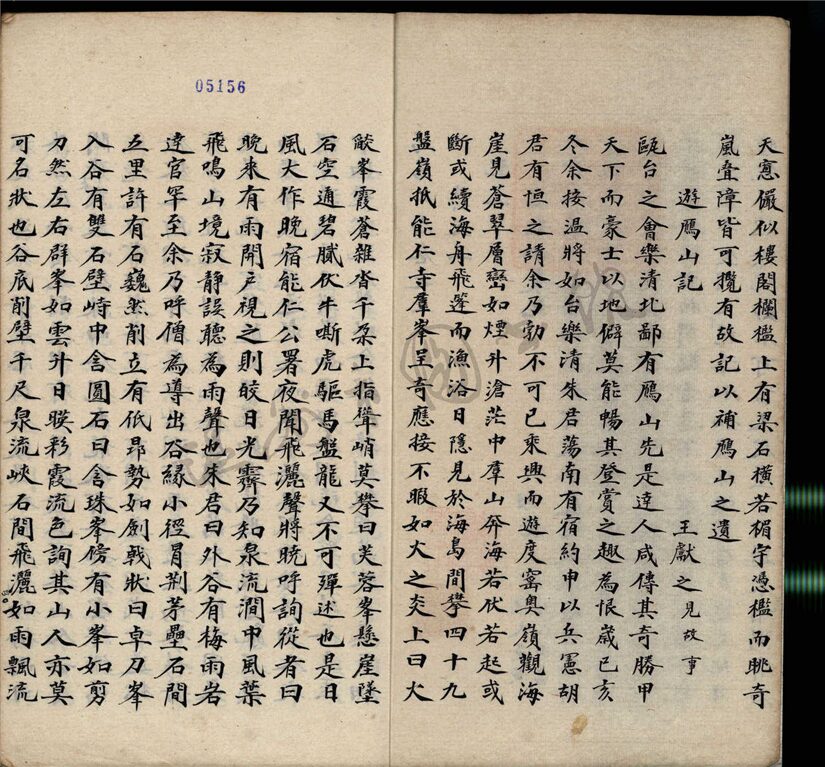 天窓儼似樓閣欄檻上有梁石橫若楣字憑檻而眺奇
嵐疊障皆可攬有故記以補鴈山之遺
遊鴈山記
王獻之見故事
甌台之會樂清北鄙有鴈山先是達人咸傳其奇勝甲
天下而豪士以地僻莫能暢其登賞之趣為恨歲已亥
冬余按温將如台樂清朱君蕩南有宿約申以兵憲胡
君有恒之請余乃勃不可已乘興而遊度窑奧嶺觀海
崖見蒼翠層巒如煙升滄茫中羣山奔海若伏若起或
斷或續海舟飛篷而漁浴日隱見於海島間攀四十九
盤嶺抵能仁寺羣峯呈奇應接不暇如火之炎上曰火
05156
燄峯霞蒼雜沓千朶上指聳峭莫攀曰芙蓉峯懸崖墜
石空通碧膩伏牛嘶虎驅馬盤龍又不可殫述也是日
風大作晚宿能仁公署夜聞飛灑聲將曉呼詢從者曰
晚來有雨開戶視之則皎日光霽乃知泉流澗中風葉
飛鳴山境寂静誤聽為雨聲也朱君曰外谷有梅雨岩
達官罕至余乃呼僧為導出谷緣小徑冐荆茅壘石間
五里許有石巍然削立有低昂勢如劍戟狀曰卓刀峯
入谷有雙石壁峙中含圓石曰含珠峯傍有小峯如剪
刀然左右群峯如雲升日暎彩霞流色詢其山人亦莫
可名狀也谷底削壁千尺泉流峽石間飛灑如雨飄流